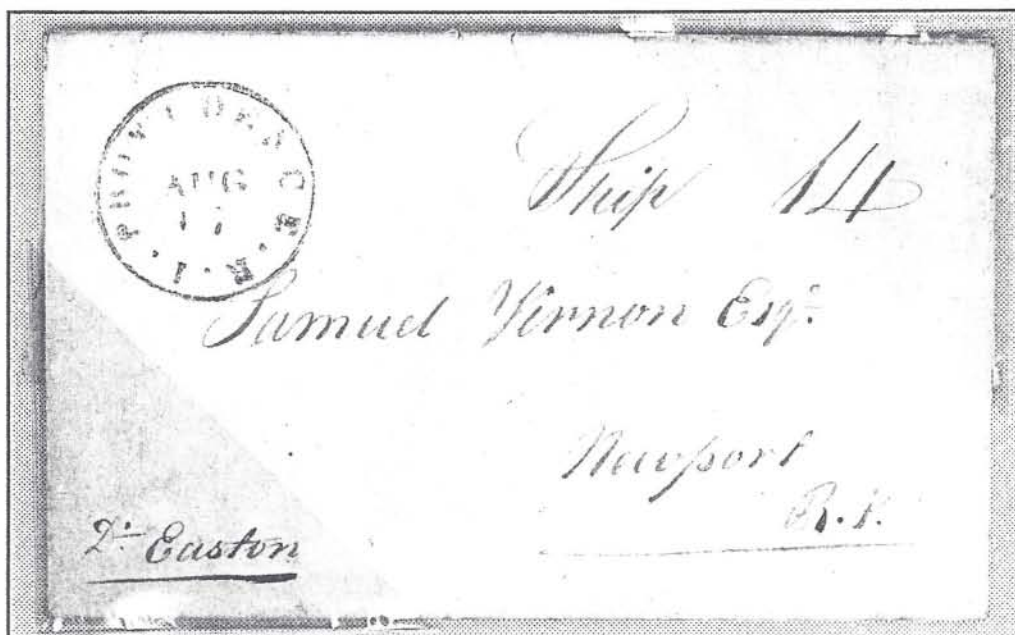 PROVIDENCE. R.I.
AUG
Ship 14
Samuel Vernon Esqr.
Newport
R.I.
Easton